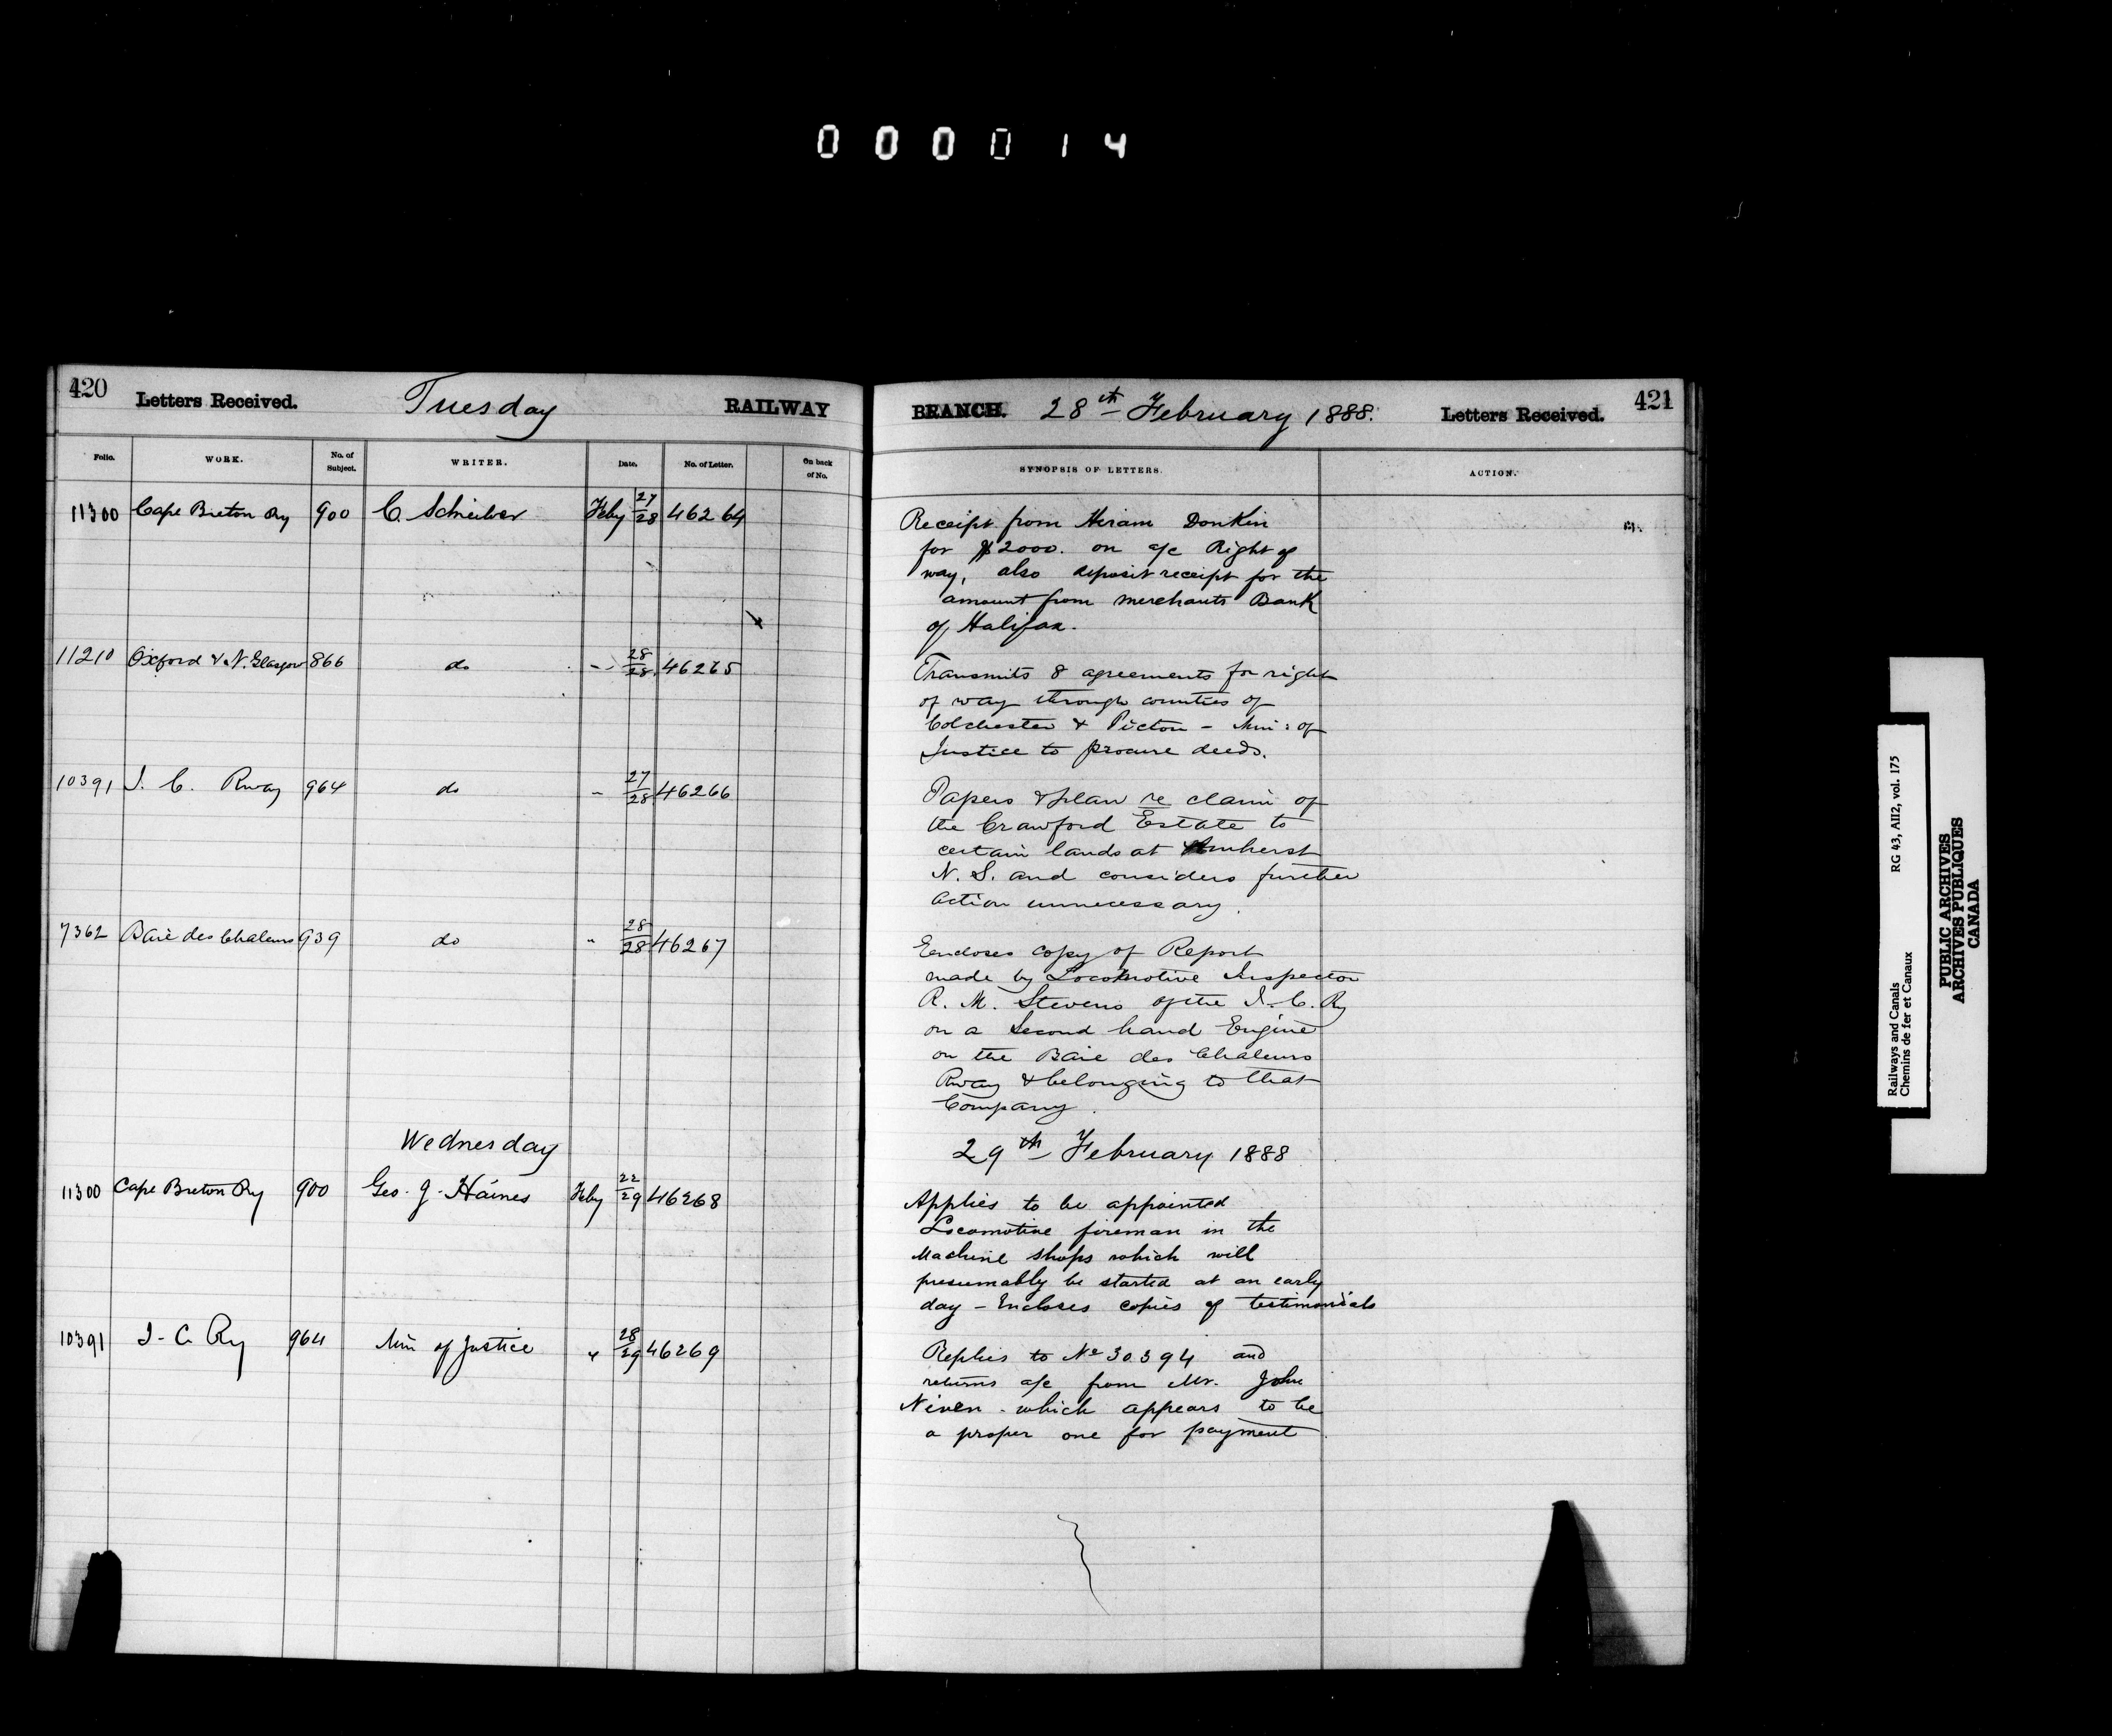 000014
420 Letters Received. Tuesday RAILWAY
BRANCH. 28th February 1888. Letters Received. 421
Folio. WORK. No. of Subject. WRITER. Date. No. of Letter. On back of No.
SYNOPSIS OF LETTERS. ACTION.
11300 Cape Breton Ry 900 C. Schreiber Feby 27/28 46264
Receipt from Hiram Donkin
for $2000. on a/c Right of
way, also deposit receipt for the
amount from Merchants Bank
of Halifax.
11210 Oxford & N. Glasgow 866 do " 28/28 46265
Transmits 8 agreements for right
of way through counties of
Colchester & Pictou - Min: of
Justice to procure deeds.
10391 I. C. Rway 964 do " 27/28 46266
Papers & plan re claim of
the Crawford Estate to
certain lands at Amherst
N. S. and considers further
action unnecessary.
7362 Baie des Chaleurs 939 do " 28/28 46267
Encloses copy of Report
made by Locomotive Inspector
R. M. Stevens of the I. C. Ry
on a second hand Engine
on the Baie des Chaleurs
Rway & belonging to that
Company.
Wednesday 29th February 1888
11300 Cape Breton Ry 900 Geo. J. Haines Feby 22/29 46268
Applies to be appointed
Locomotive fireman in the
Machine shops which will
presumably be started at an early
day - Encloses copies of testimonials
10391 I. C. Ry 964 Min of Justice " 28/29 46269
Replies to No 30394 and
returns a/c from Mr. John
Niven - which appears to be
a proper one for payment
Railways and Canals RG 43, AII2, vol. 175
Chemins de fer et Canaux
PUBLIC ARCHIVES
ARCHIVES PUBLIQUES
CANADA